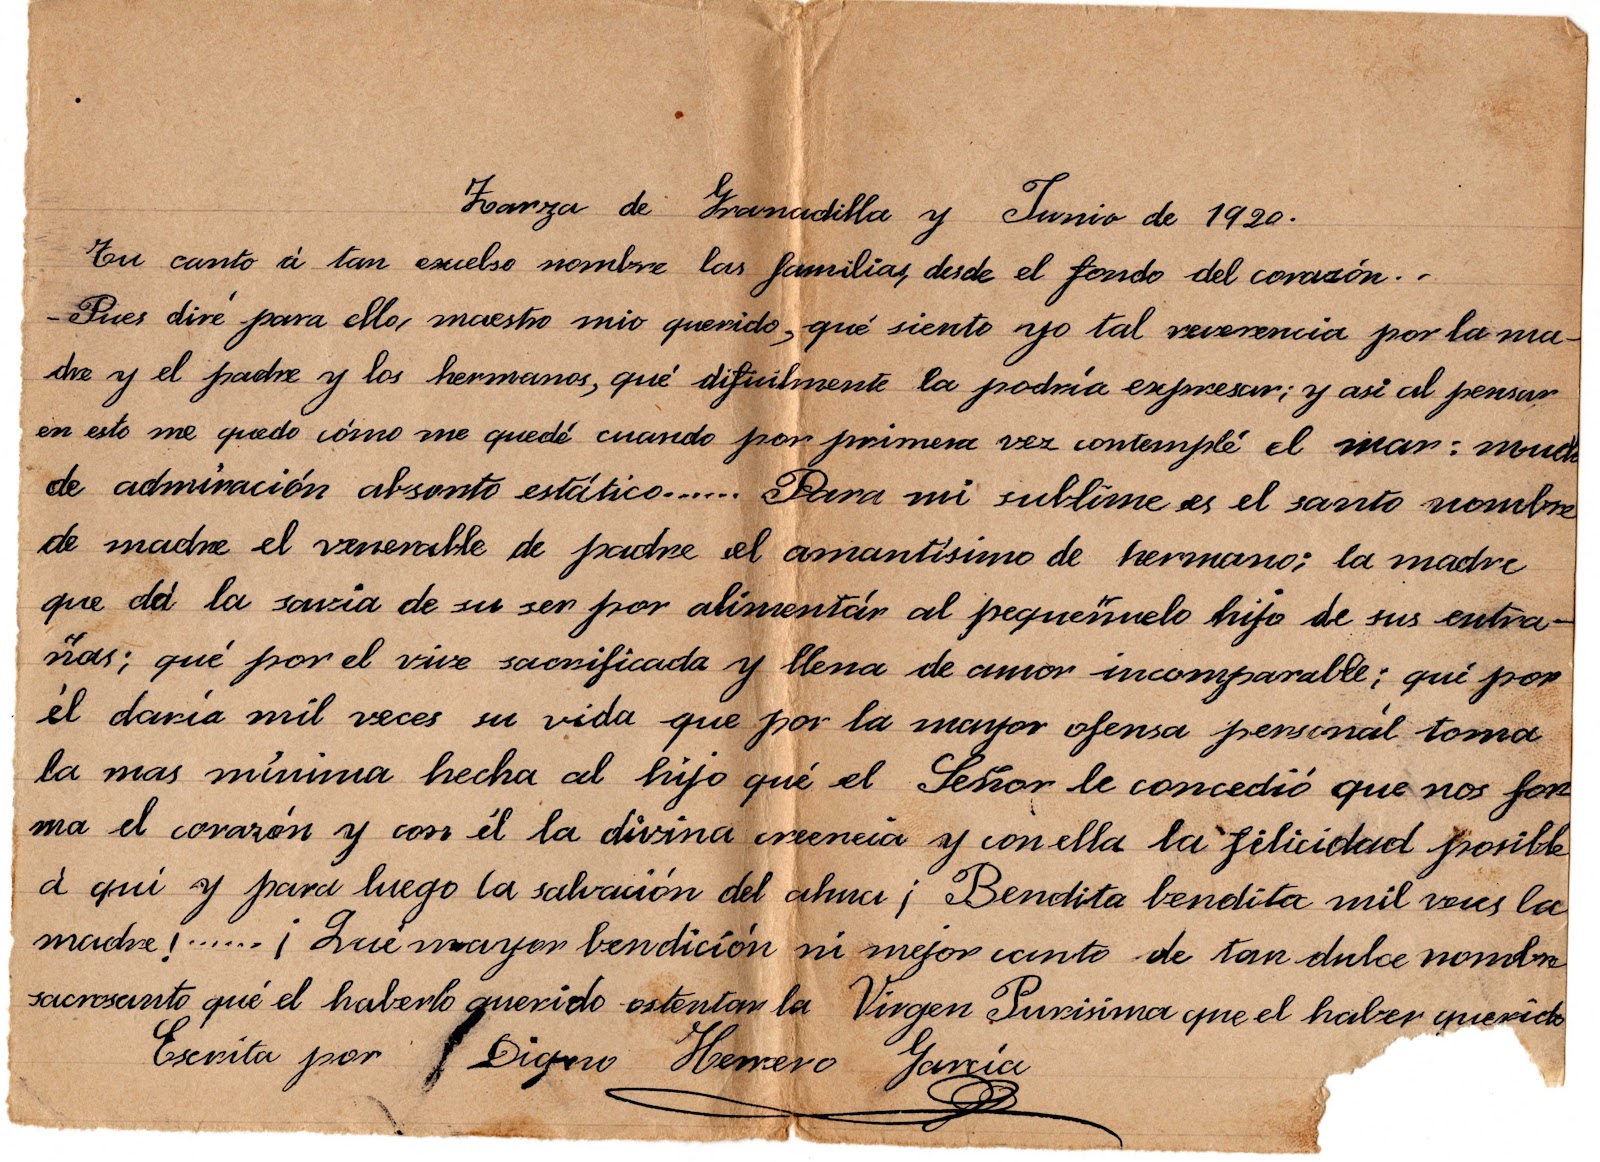 Zarza de Granadilla y Junio de 1920.
Tu canto á tan exuelso nombre las familias, desde el fondo del corazón..
-Pues diré para ello, maestro mio querido, qué siento yo tal reverencia por la ma-
dre y el padre y los hermanos, qué dificilmente la podría expresar; y asi al pensar
en esto me quedo cómo me quedé cuando por primera vez contemplé el mar: mudo
de admiración absorto estático...... Para mi sublime es el santo nombre
de madre el venerable de padre el amantísimo de hermano; la madre
que dá la savia de su ser por alimentár al pequeñuelo hijo de sus entra-
ñas; qué por el vive sacrificada y llena de amor incomparable; qué por
él daría mil veces su vida que por la mayor ofensa personál toma
la mas mínima hecha al hijo qué el Señor le concedió que nos for
ma el corazón y con él la divina creencia y con ella la felicidad posible
á qui y para luego la salvación del alma ¡ Bendita bendita mil veces la
madre!...... ¡ Qué mayor bendición ni mejor canto de tan dulce nombre
sacrosanto qué el haberlo querido ostentar la Virgen Purisima que el haber querido
Escrita por Digno Herrero García